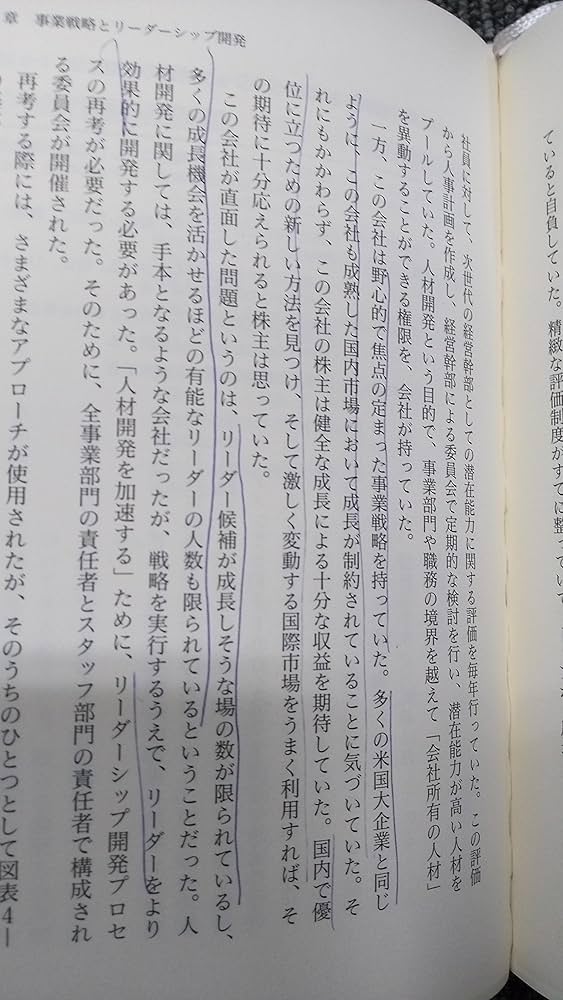 ていると自負していた。精緻な評価制度がすでに整っていて、
章　事業戦略とリーダーシップ開発
社員に対して、次世代の経営幹部としての潜在能力に関する評価を毎年行っていた。この評価
から人事計画を作成し、経営幹部による委員会で定期的な検討を行い、潜在能力が高い人材を
プールしていた。人材開発という目的で、事業部門や職務の境界を越えて「会社所有の人材」
を異動することができる権限を、会社が持っていた。
一方、この会社は野心的で焦点の定まった事業戦略を持っていた。多くの米国大企業と同じ
ように、この会社も成熟した国内市場において成長が制約されていることに気づいていた。そ
れにもかかわらず、この会社の株主は健全な成長による十分な収益を期待していた。国内で優
位に立つための新しい方法を見つけ、そして激しく変動する国際市場をうまく利用すれば、そ
の期待に十分応えられると株主は思っていた。
この会社が直面した問題というのは、リーダー候補が成長しそうな場の数が限られているし、
多くの成長機会を活かせるほどの有能なリーダーの人数も限られているということだった。人
材開発に関しては、手本となるような会社だったが、戦略を実行するうえで、リーダーをより
効果的に開発する必要があった。「人材開発を加速する」ために、リーダーシップ開発プロセ
スの再考が必要だった。そのために、全事業部門の責任者とスタッフ部門の責任者で構成され
る委員会が開催された。
再考する際には、さまざまなアプローチが使用されたが、そのうちのひとつとして図表4－